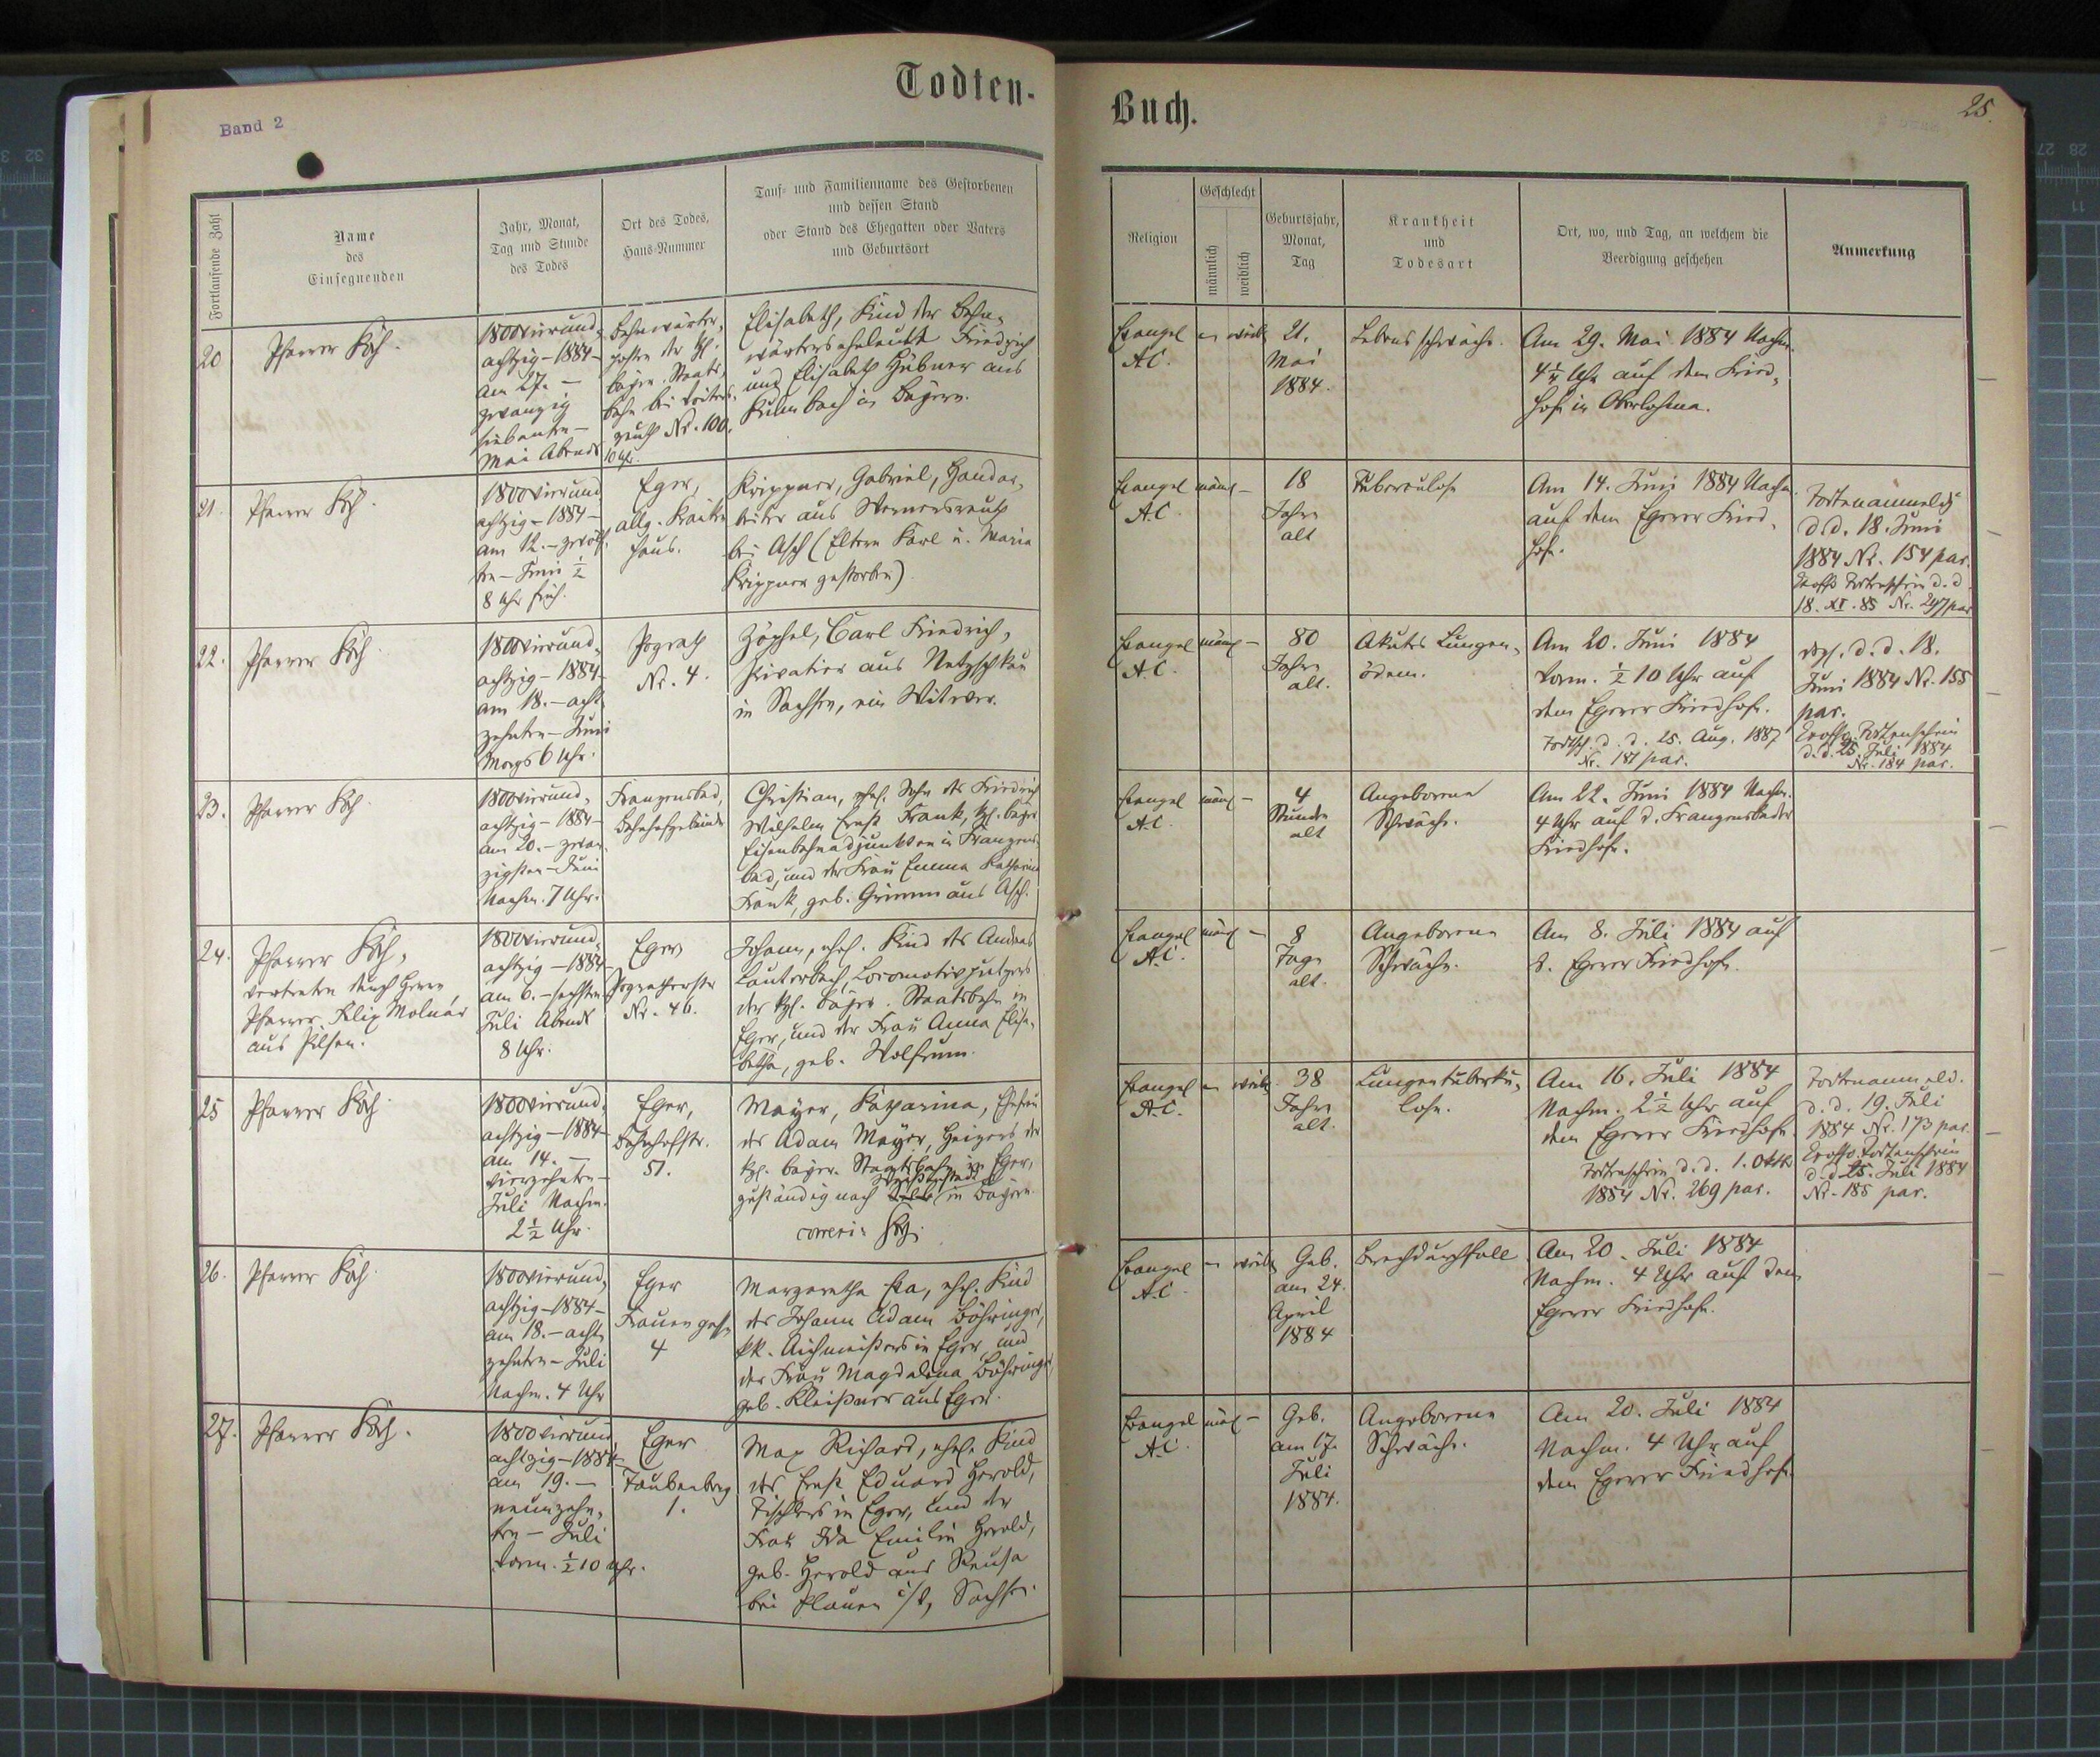 Todten-
Band 2
Fortlaufende Zahl
Name
des
Einsegnenden
Jahr, Monat,
Tag und Stunde
des Todes
Ort des Todes,
Haus-Nummer
Tauf- und Familienname des Gestorbenen
und dessen Stand
oder Stand des Ehegatten oder Vaters
und Geburtsort
20
Pfarrer Koch.
1800vierund-
achtzig-1884-
am 27. -
zwanzig
siebenten-
Mai Abends
10 Uhr.
Bahnwärter-
posten der kgl.
bayr. Staats-
bahn bei
Nr. 100.
Elisabeth, Kind der Bahn-
wärterseheleute Friedrich
und Elisabeth Hübner aus
Kulmbach in Bayern.
21.
Pfarrer Koch.
1800vierund
achtzig-1884-
am 12.-zwölf-
ten-Juni ½
8 Uhr früh.
Eger,
allg. Kranken
haus.
Krippner, Gabriel, Handar-
beiter aus Wernersreuth
bei Asch (Eltern Karl u. Maria
Krippner gestorben).
22.
Pfarrer Koch.
1800vierund-
achtzig-1884-
am 18.-acht
zehnten-Juni
Morgs 6 Uhr.
Pograth
Nr. 4.
Zöphel, Carl Friedrich,
Privatier aus Netzschkau
in Sachsen, ein Witwer.
23.
Pfarrer Koch.
1800vierund-
achtzig-1884-
am 20.-zwan
zigsten-Juni
Nachm. 7 Uhr.
Franzensbad,
Bahnhofgebäude
Christian, ehel. Sohn des Friedrich
Wilhelm Ernst Frank, kgl. bayr.
Eisenbahnadjunkten in Franzens-
bad, und der Frau Emma Katharina
Frank, geb. Grimm aus Asch.
24.
Pfarrer Koch,
vertreten durch Herrn
Pfarrer Filip Molnár
aus Pilsen.
1800vierund-
achtzig-1884-
am 6.-sechsten
Juli Abends
8 Uhr.
Eger
Pogratherstr
Nr. 46.
Johann, ehel. Kind des Andreas
Lauterbach, Locomotivputzers
der kgl. bayer. Staatsbahn in
Eger, und der Frau Anna Elisa-
betha, geb. Wolfrum.
25
Pfarrer Koch.
1800vierund-
achtzig-1884-
am 14. -
vierzehnten-
Juli Nachm.
2½ Uhr.
Eger,
Bahnhofstr.
51.
Mayer, Katharina, Ehefrau
des Adam Mayer, Heizers der
kgl. bayer. Staatsbahn in Eger,
zuständig nach in Bayern.
Koch.
26.
Pfarrer Koch.
1800vierund-
achtzig-1884-
am 18.-acht
zehnten-Juli
Nachm. 4 Uhr
Eger
Frauengasse
4
Margaretha Eva, ehel. Kind
des Johann Adam Böhringer,
kk. Aichmeisters in Eger, und
der Frau Magdalena Böhringer,
geb. Kleissner aus Eger.
27.
Pfarrer Koch.
1800vierund
achtzig-1884-
am 19. -
neunzehn-
ten - Juli
Vorm. ½ 10 Uhr.
Eger
Taubenberg
1.
Max Richard, ehel. Kind
des Ernst Eduard Herold,
Tischlers in Eger, und der
Frau Ida Emilie Herold,
geb. Herold aus Reusa
bei Plauen i/V, Sachsen.
Buch.
25.
Religion
Geschlecht
männlich
weiblich
Geburtsjahr,
Monat,
Tag
Krankheit
und
Todesart
Ort, wo, und Tag, an welchem die
Beerdigung geschehen
Anmerkung
Evangel
A.C.
weibl
21.
Mai
1884.
Lebensschwäche.
Am 29. Mai 1884 Nachm.
4¼ Uhr auf dem Fried-
hofe in Oberlohma.
Evangel
A.C.
männl -
18
Jahre
alt
Tuberculose
Am 14. Juni 1884 Nachm.
auf dem Egerer Fried-
hofe.
Todtenanmeldg
d.d. 18. Juni
1884 Nr. 154 par.
Exoffo Todtenschein d.d.
18. XI. 85 Nr. 297 par
Evangel
A.C.
männl -
80
Jahre
alt.
Akutes Lungen-
ödem.
Am 20. Juni 1884
Vorm. ½ 10 Uhr auf
dem Egerer Friedhofe.
Todtsch. d. d. 25. Aug. 1887
Nr. 181 par.
dgl. d.d. 18.
Juni 1884 Nr. 155
par.
Exoffo Todtenschein
d.d. 25. Juli 1884
Nr. 184 par.
Evangel
A.C.
männl -
4
Stunden
alt
Angeborene
Schwäche.
Am 22. Juni 1884 Nachm.
4 Uhr auf d. Franzensbader
Friedhofe.
Evangel
A.C.
männl -
8
Tage
alt.
Angeborene
Schwäche.
Am 8. Juli 1884 auf
d. Egerer Friedhofe.
Evangel
A.C.
weibl
38
Jahre
alt.
Lungentuberku-
lose.
Am 16. Juli 1884
Nachm. 2½ Uhr auf
dem Egerer Friedhofe.
Todtenschein d. d. 1. Oktb
1884 Nr. 269 par.
Todtenanmeld.
d. d. 19. Juli
1884 Nr. 173 par.
Exoffo Todtenschein
d.d. 25. Juli 1884
Nr. 185 par.
Evangel
A.C.
weibl
Geb.
am 24.
April
1884
Brechdurchfall
Am 20. Juli 1884
Nachm. 4 Uhr auf dem
Egerer Friedhofe.
Evangel
A.C.
männl -
Geb.
am 17.
Juli
1884.
Angeborene
Schwäche.
Am 20. Juli 1884
Nachm. 4 Uhr auf
dem Egerer Friedhofe.